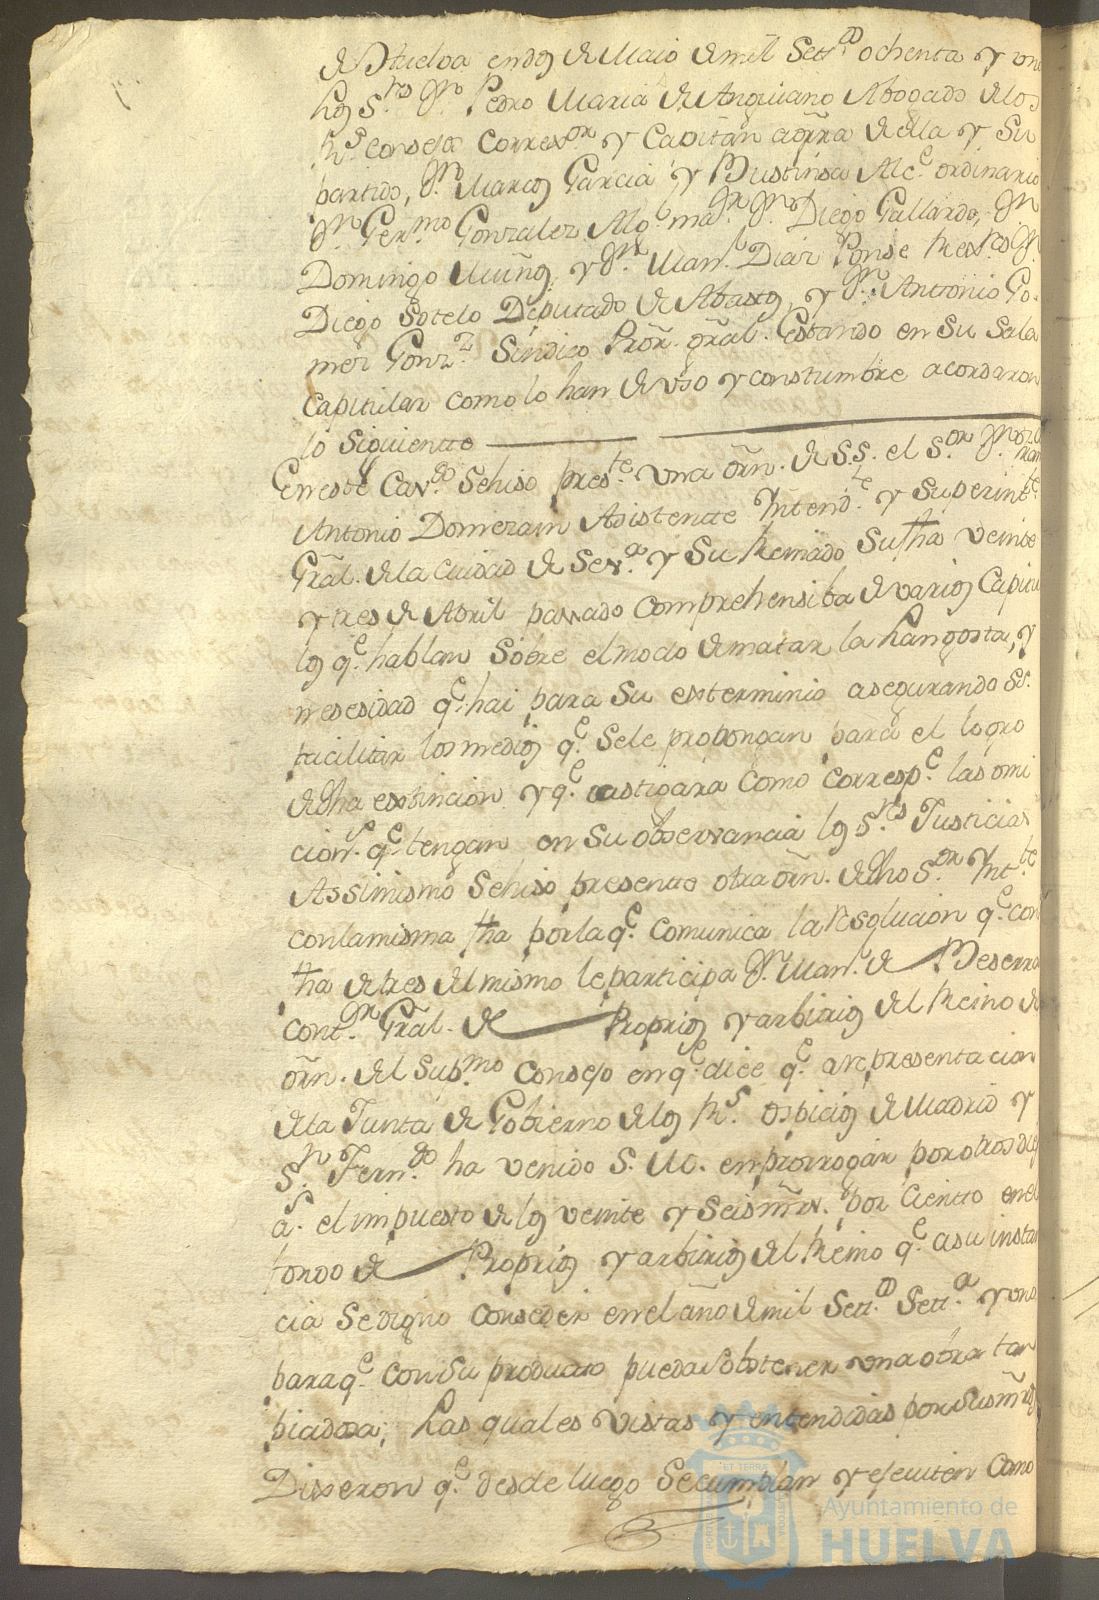 de Huelva en dos de Maio de mil Setts. ochenta y uno
los S.res Dn. Pedro Maria de Anguiano Abogado de los
Rs. Consejos Corregor. y Capitán a grra de ella y Su
partido, Dn. Marcos Garcia y Bustinsa Alce. ordinario
Dn. Germo Gonzalez Algl. maor. Dn. Diego Gallardo, Dn.
Domingo Muños, y Dn. Manl. Diaz Ponse Rexres Dn.
Diego Sotelo Deputado de Abastos, y Dn. Antonio Go-
mez Gonzz. Sindico Pror. gral. Estando en Su Sala
Capitular como lo han de uso y constumbre acordaron
lo Siguiente
En este Cavdo. Sehiso preste. una orn. de S.S. el S.or Dn.
Antonio Domezain Asistente Yntendte. y Superintte.
Gral. de la ciudad de Seva. y Su Reinado Su fha veinte
y tres de Abril passado Comprehensiba de varios Capitu
los qe. hablan Sobre el modo de matar la Langosta, y
nesesidad qe. hai para Su exterminio asegurando SS.
facilitar los medios qe. Sele propongan para el logro
de dha extincion y qe. castigara Como correspe. las omi
cions. qe. tengan en Su observancia los S.res Justicias
Assimismo Sehiso presente otra orn. de dho S.or Yntte.
con la misma fha por la qe. comunica la resolucion qe. con
fha de tres del mismo le participa Dn. Manl. de Beserra
contor. Gral. de Proprios y arbitrios del Reino de
orn. del Supmo Consejo en qe. dice qe. a representacion
de la Junta de Gobierno de los Rs. ospicios de Madrid y
Sn. Ferndo. ha venido S. M. en prorrogar por otros dies
as. el impuesto de los veinte y Seis mrs. por ciento en el
fondo de Proprios y arbitrios del Reino qe. a su instan
cia Se digno Conseder en el año de mil Setts. Setta. y uno
para qe. con Su producto puedan obstener una obra tan
piadosa; Las quales vistas y entendidas por Sus mrds
Dixeron qe. desde luego Se cumplan y ejecuten Como
Ayuntamiento de
HUELVA